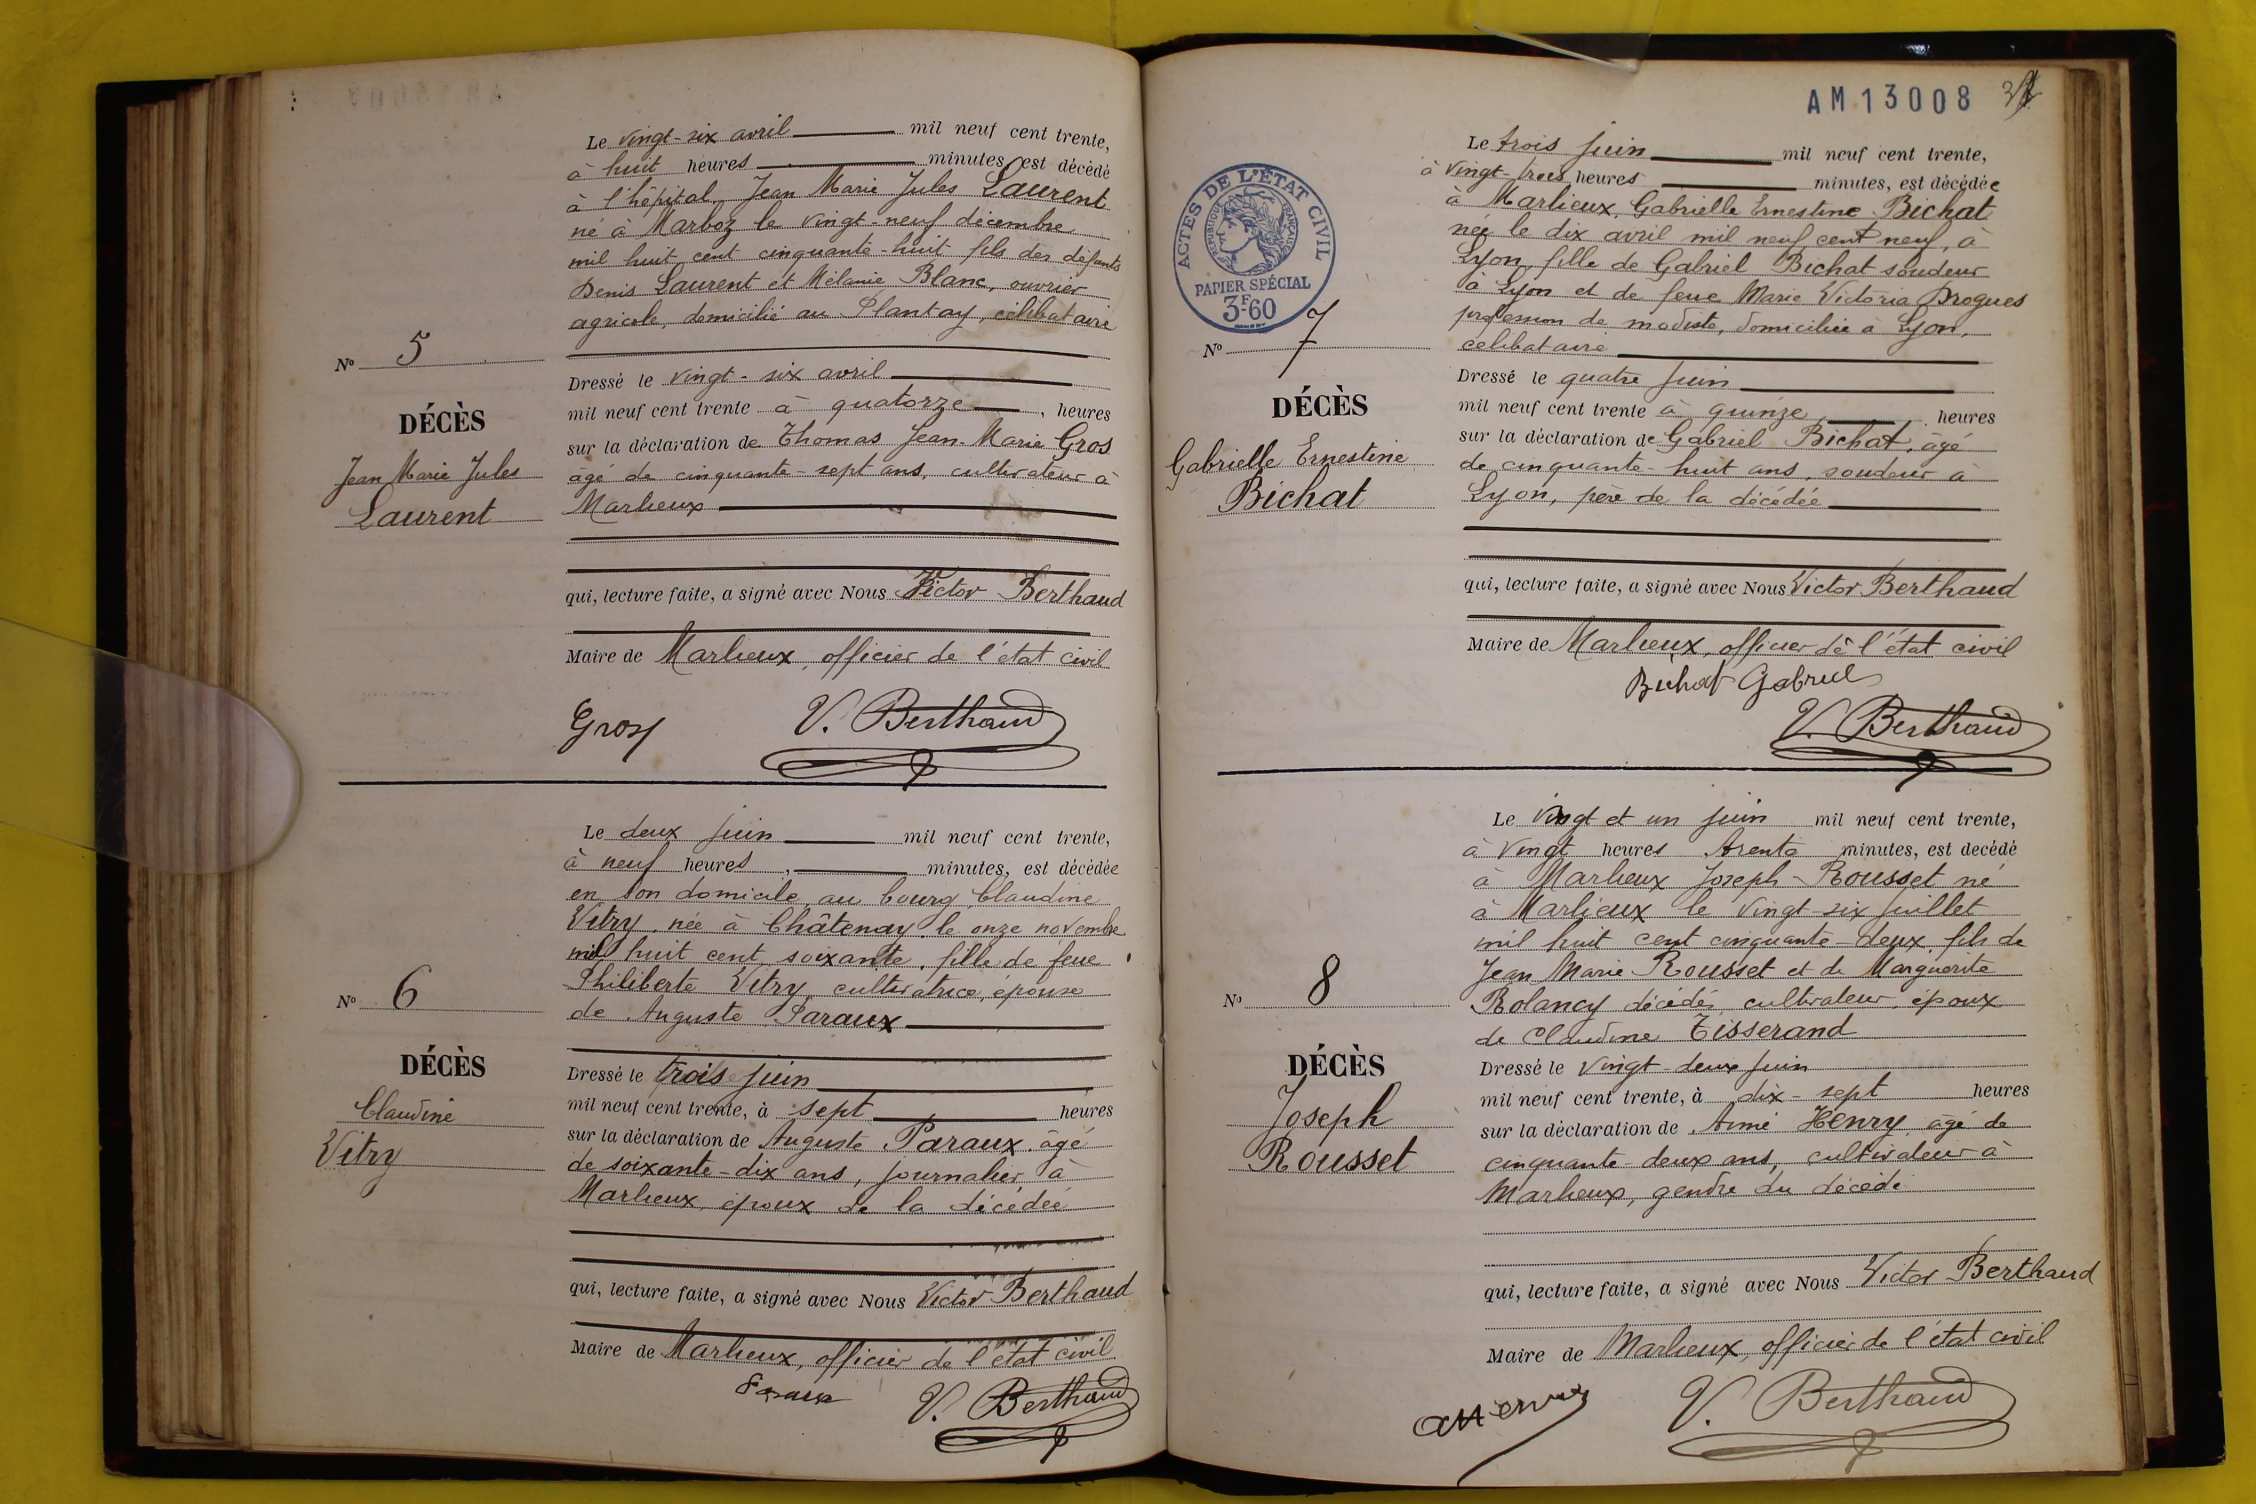 Le vingt-six avril mil neuf cent trente,
à huit heures minutes, est décédé
à l'hôpital, Jean Marie Jules Laurent
né à Marboz le vingt-neuf décembre
mil huit cent cinquante-huit fils des défunts
Denis Laurent et Mélanie Blanc, ouvrier
agricole, domicilié au Plantay, célibataire
N° 5
DÉCÈS
Jean Marie Jules
Laurent
Dressé le vingt-six avril
mil neuf cent trente à quatorze, heures
sur la déclaration de Thomas Jean-Marie Gros
âgé de cinquante-sept ans, cultivateur à
Marlieux
qui, lecture faite, a signé avec Nous Victor Berthaud
Maire de Marlieux, officier de l'état civil
Gros V. Berthaud
Le deux juin mil neuf cent trente,
à neuf heures, minutes, est décédée
en son domicile, au bourg, Claudine
Vitry, née à Châtenay, le onze novembre
mil huit cent soixante, fille de feue
Philiberte Vitry, cultivatrice, épouse
de Auguste Paraux
N° 6
DÉCÈS
Claudine
Vitry
Dressé le trois juin
mil neuf cent trente, à sept heures
sur la déclaration de Auguste Paraux, âgé
de soixante-dix ans, journalier à
Marlieux, époux de la décédée
qui, lecture faite, a signé avec Nous Victor Berthaud
Maire de Marlieux, officier de l'état civil
Paraux V. Berthaud
AM 13008
ACTES DE L'ÉTAT CIVIL
RÉPUBLIQUE FRANÇAISE
PAPIER SPÉCIAL
3F-60
Le trois juin mil neuf cent trente,
à vingt-trois heures minutes, est décédée
à Marlieux, Gabrielle Ernestine Bichat
née le dix avril mil neuf cent neuf, à
Lyon, fille de Gabriel Bichat soudeur
à Lyon et de feue Marie Victoria Drogues
profession de modiste, domiciliée à Lyon,
célibataire
N° 7
DÉCÈS
Gabrielle Ernestine
Bichat
Dressé le quatre juin
mil neuf cent trente à quinze heures
sur la déclaration de Gabriel Bichat, âgé
de cinquante-huit ans, soudeur à
Lyon, père de la décédée
qui, lecture faite, a signé avec Nous Victor Berthaud
Maire de Marlieux, officier de l'état civil
Bichat Gabriel
V. Berthaud
Le vingt et un juin mil neuf cent trente,
à vingt heures trente minutes, est décédé
à Marlieux Joseph Rousset né
à Marlieux le vingt-six juillet
mil huit cent cinquante-deux, fils de
Jean Marie Rousset et de Marguerite
Rolancy décédés, cultivateur, époux
de Claudine Tisserand
N° 8
DÉCÈS
Joseph
Rousset
Dressé le vingt-deux juin
mil neuf cent trente, à dix-sept heures
sur la déclaration de Aimé Henry, âgé de
cinquante-deux ans, cultivateur à
Marlieux, gendre du décédé
qui, lecture faite, a signé avec Nous Victor Berthaud
Maire de Marlieux, officier de l'état civil
V. Berthaud